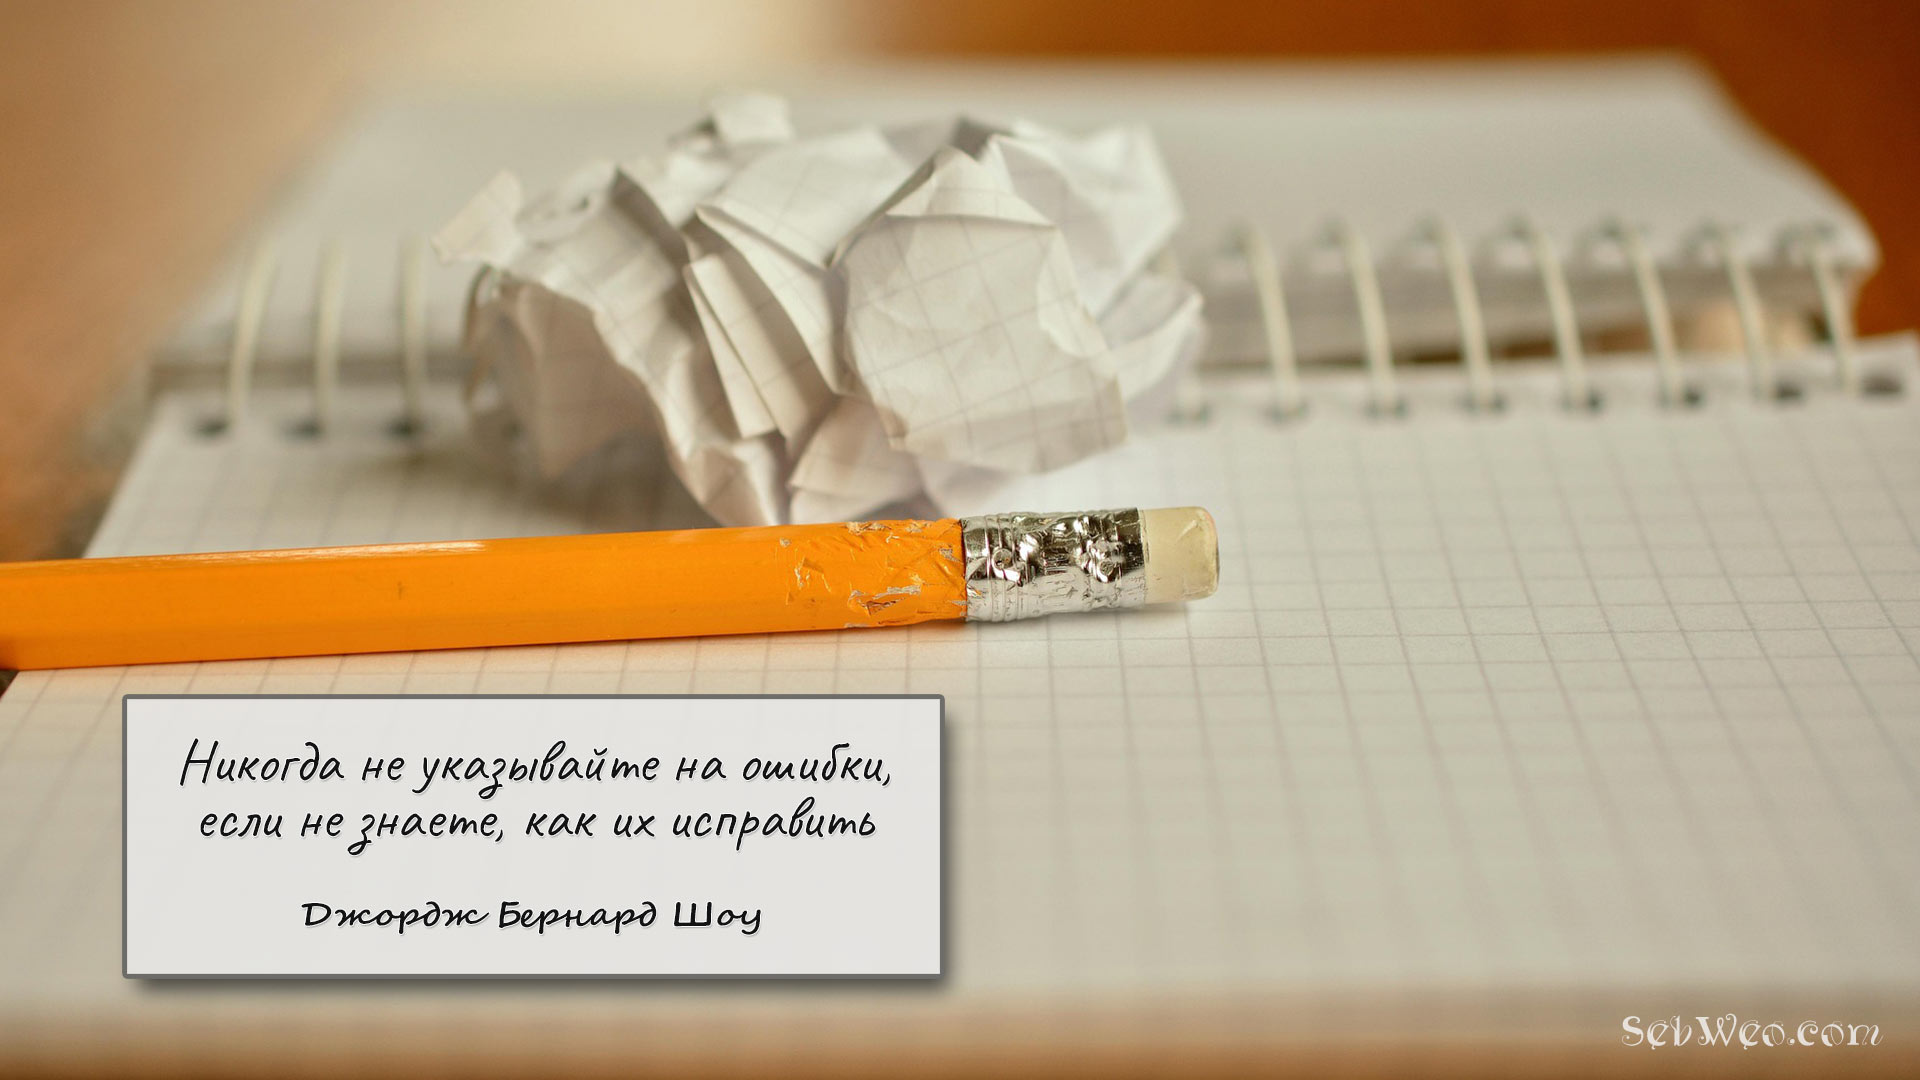 Никогда не указывайте на ошибки,
если не знаете, как их исправить
Джордж Бернард Шоу
SebWeo.com